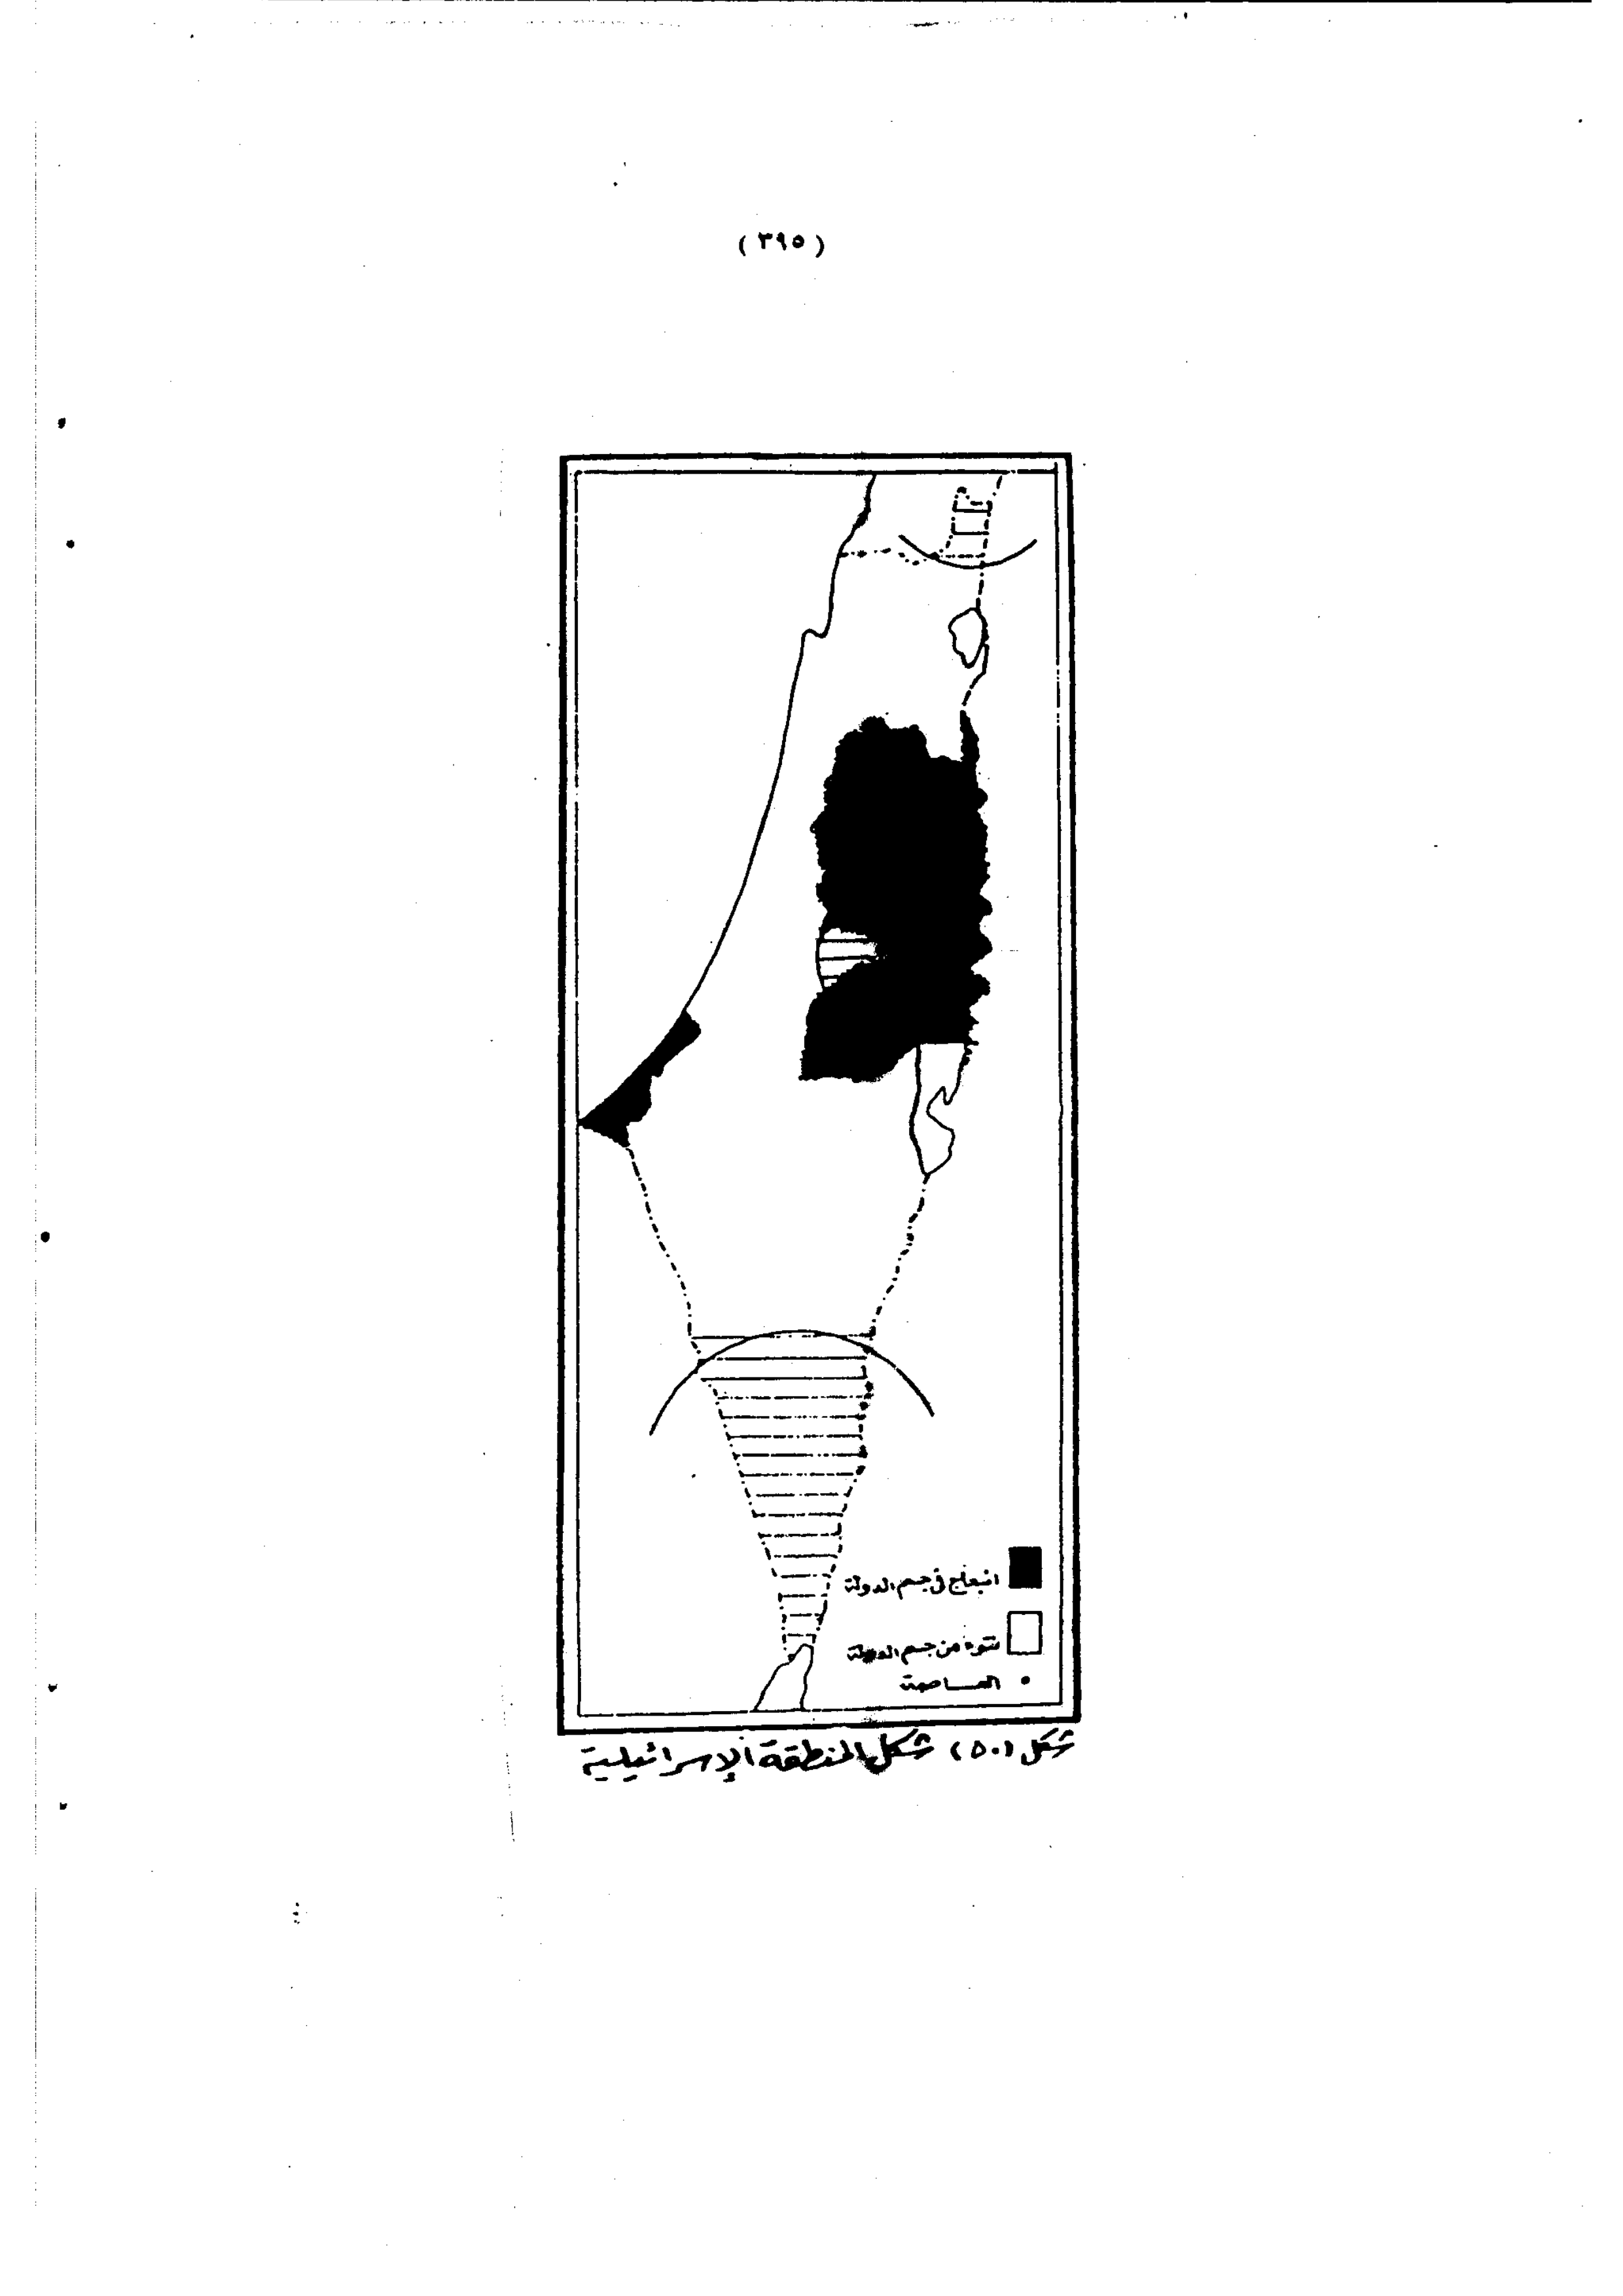 ( ٣٩٥ )
انبعاج في جسم الدولة
نتوء من جسم الدولة
العاصمة
شكل (٥٠) شكل المنطقة الإسرائيلية